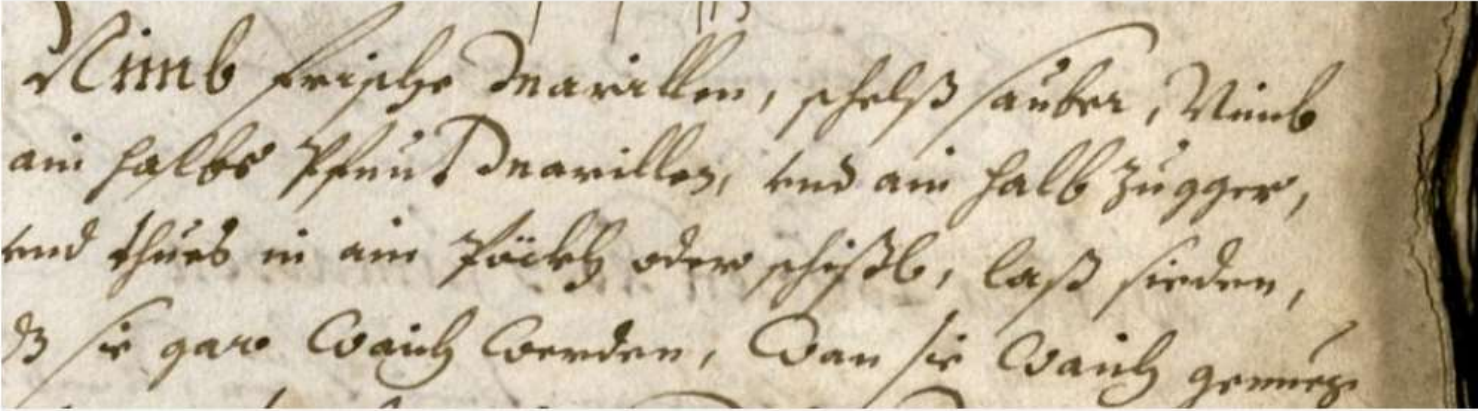 Nimb frische Marillen, schelß sauber, Nimb
ain halbs Pfunt Marillen, vnd ain halb Zugger,
vnd thues in ain Pöckh oder schißl, laß sieden,
dz sie gar Waich werden, Wan sie Waich genueg